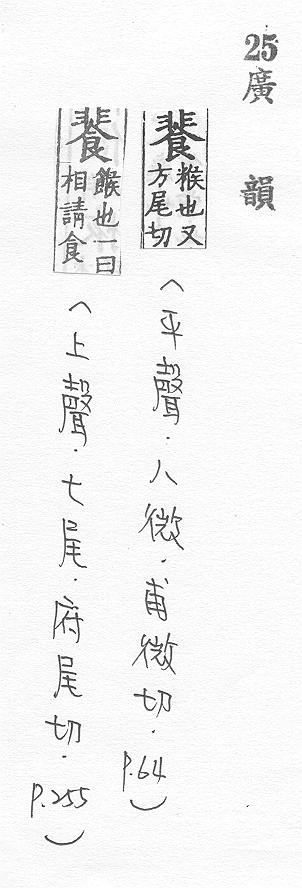 25廣韻
餥 糇也又方尾切
︿平聲．八微．甫微切．P.64﹀
餥 餱也一曰相請食
︿上聲．七尾．府尾切．P.255﹀